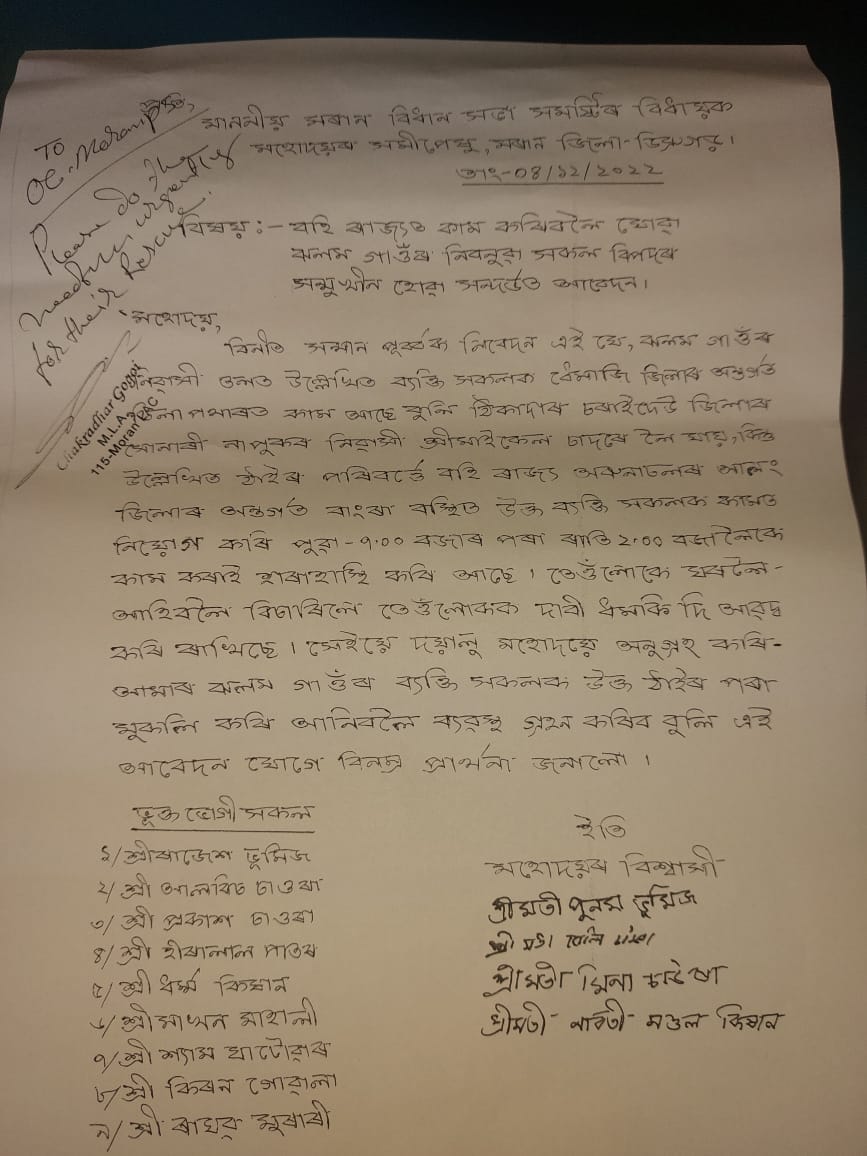 TO
OC. Moran P.S,
Please do the
needful urgently
for their Rescue.
Chakradhar Gogoi
M.L.A
115-Moran LAC
মাননীয় মৰাণ বিধান সভা সমষ্টিৰ বিধায়ক
মহোদয়ৰ সমীপেষু, মৰান জিলা-ডিব্ৰুগড়।
তাং-০8/১২/২০২২
বিষয় :- বহি ৰাজ্যত কাম কৰিবলৈ যোৱা
ঝলম গাওঁৰ নিবনুৱা সকল বিপদৰ
সন্মুখীন হোৱা সন্দৰ্ভত আবেদন।
মহোদয়,
বিনীত সন্মান পূৰ্ব্বক নিবেদন এই যে, ঝলম গাওঁৰ
নিবাসী তলত উল্লেখিত ব্যক্তি সকলক ধেমাজি জিলাৰ অন্তৰ্গত
পথাৰত কাম আছে বুলি ঠিকাদাৰ চৰাইদেউ জিলাৰ
সোনাৰী নাপুকৰ নিবাসী শ্ৰীমাইকেল চাদৰে লৈ যায়, কিন্তু
উল্লেখিত ঠাইৰ পৰিবৰ্তে বহি ৰাজ্য অৰুনাচলৰ আলং
জিলাৰ অন্তৰ্গত বাংৰা বস্তিত উক্ত ব্যক্তি সকলক কামত
নিয়োগ কৰি পুৱা - ৭.০০ বজাৰ পৰা ৰাতি 2.00 বজালৈকে
কাম কৰাই হাৰাশাস্তি কৰি আছে। তেওঁলোকে ঘৰলৈ-
আহিবলৈ বিচাৰিলে তেওঁলোকক দাবী ধমকি দি আৱদ্ধ
কৰি ৰাখিছে। সেইয়ে দয়ালু মহোদয়ে অনুগ্ৰহ কৰি-
আমাৰ ঝলম গাওঁৰ ব্যক্তি সকলক উক্ত ঠাইৰ পৰা
মুকলি কৰি আনিবলৈ ব্যৱস্থা গ্ৰহন কৰিব বুলি এই
আবেদন যোগে বিনম্ৰ প্ৰাৰ্থনা জনালো।
ভূক্তভোগী সকল
১/ শ্ৰীৰাজেশ ভূমিজ
২/ শ্ৰী আলবিচ চাওৰা
৩/ শ্ৰী প্ৰকাশ চাওৰা
8/ শ্ৰী হীৰালাল পাত্ৰ
৫/ শ্ৰী ধৰ্ম্ম কিষান
৬/ শ্ৰীমাখন মাহালী
৭/ শ্ৰী শ্যাম ঘাটোৱাৰ
৮/ শ্ৰী কিৰন গোৱালা
৯/ শ্ৰী ৰাঘৱ মুৰাৰী
ইতি
মহোদয়ৰ বিশ্বাসী
শ্ৰীমতী পুনম ভূমিজ
শ্ৰী মতী
শ্ৰীমতী মিনা চাওৰা
শ্ৰীমতী পাৰ্বতী মণ্ডল কিষান